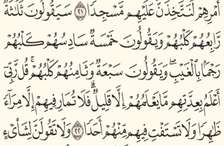 أَمْرِهِمْ لَنَتَّخِذَنَّ عَلَيْهِم مَّسْجِدًا ٢١ سَيَقُولُونَ ثَلَٰثَةٌ
رَّابِعُهُمْ كَلْبُهُمْ وَيَقُولُونَ خَمْسَةٌ سَادِسُهُمْ كَلْبُهُمْ
رَجْمًۢا بِٱلْغَيْبِ وَيَقُولُونَ سَبْعَةٌ وَثَامِنُهُمْ كَلْبُهُمْ قُل رَّبِّىٓ
أَعْلَمُ بِعِدَّتِهِم مَّا يَعْلَمُهُمْ إِلَّا قَلِيلٌ فَلَا تُمَارِ فِيهِمْ إِلَّا مِرَآءً
ظَٰهِرًا وَلَا تَسْتَفْتِ فِيهِم مِّنْهُمْ أَحَدًا ٢٢ وَلَا تَقُولَنَّ لِشَا۟ىْءٍ